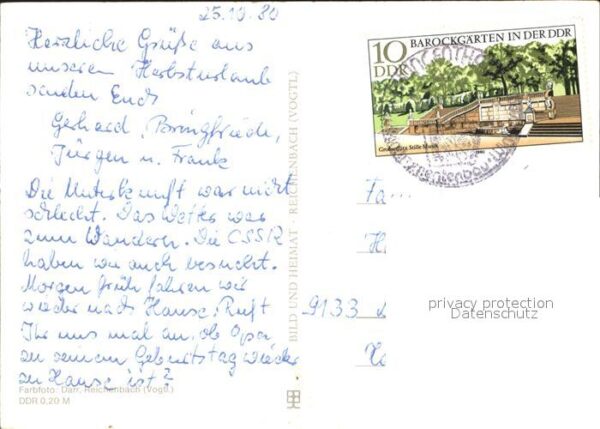 25.10.80
Herzliche Grüße aus
unserem Herbsturlaub
senden Euch
Gerhard, Bringfriede,
Jürgen u. Frank
Die Unterkunft war nicht
schlecht. Das Wetter war
zum Wandern. Die CSSR
haben wir auch besucht.
Morgen früh fahren wir
wieder nach Hause. Ruft
Ihr uns mal an, ob Opa
zu seinem Geburtstag wieder
zu Hause ist?
Farbfoto: Darr, Reichenbach (Vogtl.)
DDR 0,20 M
BILD UND HEIMAT · REICHENBACH (VOGTL)
10
DDR
BAROCKGÄRTEN IN DER DDR
Großsedlitz, Stille Musik
1980
Fa
H
9133
privacy protection
Datenschutz